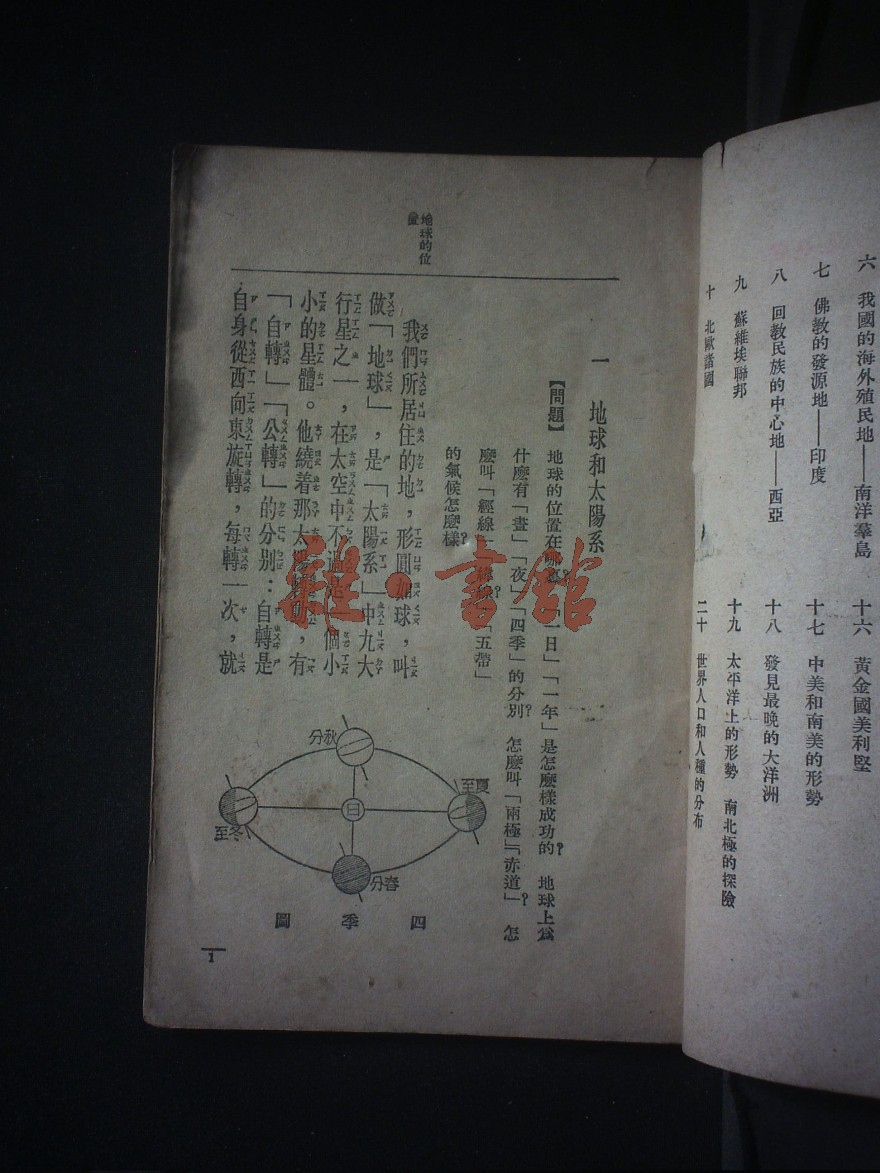 六　我國的海外殖民地——南洋羣島
七　佛教的發源地——印度
八　回教民族的中心地——西亞
九　蘇維埃聯邦
十　北歐諸國
十六　黃金國美利堅
十七　中美和南美的形勢
十八　發見最晚的大洋洲
十九　太平洋上的形勢　南北極的探險
二十　世界人口和人種的分布
地球的位置
一　地球和太陽系
【問題】　地球的位置在哪裏？「一日」「一年」是怎麼樣成功的？　地球上爲
什麼有「晝」「夜」「四季」的分別？　怎麼叫「兩極」「赤道」？　怎
麼叫「經線」「緯線」？「五帶」
的氣候怎麼樣？
我們所居住的地，形圓如球，叫
做「地球」，是「太陽系」中九大
行星之一，在太空中不過是一個小
小的星體。他繞着那太陽轉動，有
「自轉」「公轉」的分別：自轉是
自身從西向東旋轉，每轉一次，就
秋分
夏至
日
冬至
春分
四季圖
1
雜·書館